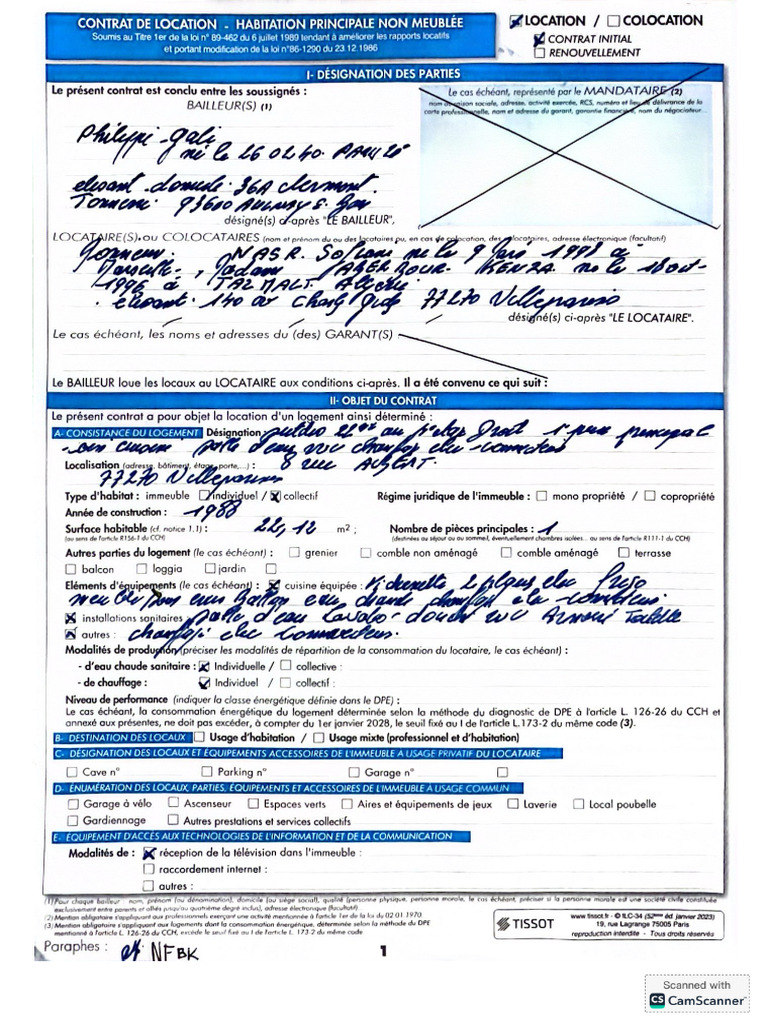 CONTRAT DE LOCATION - HABITATION PRINCIPALE NON MEUBLÉE
Soumis au Titre 1er de la loi n° 89-462 du 6 juillet 1989 tendant à améliorer les rapports locatifs
et portant modification de la loi n°86-1290 du 23.12.1986
LOCATION / COLOCATION
CONTRAT INITIAL
RENOUVELLEMENT
I- DÉSIGNATION DES PARTIES
Le présent contrat est conclu entre les soussignés :
BAILLEUR(S) (1)
Le cas échéant, représenté par le MANDATAIRE (2)
nom ou raison sociale, adresse, activité exercée, RCS, numéro et lieu de délivrance de la
carte professionnelle, nom et adresse du garant, garantie financière, nom du négociateur...
Philippe
né le 26 02 40
36A Clermont
Tonnerre 93600 Aulnay S.
désigné(s) ci-après "LE BAILLEUR",
LOCATAIRE(S) ou COLOCATAIRES (nom et prénom du ou des locataires ou, en cas de colocation, des colocataires, adresse électronique (facultatif)
NASR. né le 9 1998 à
Madame KENZA. né le 18 oct
1996 à TAZMALT. Algérie
140 77270 Villeparisis
désigné(s) ci-après "LE LOCATAIRE".
Le cas échéant, les noms et adresses du (des) GARANT(S)
Le BAILLEUR loue les locaux au LOCATAIRE aux conditions ci-après. Il a été convenu ce qui suit :
II- OBJET DU CONTRAT
Le présent contrat a pour objet la location d'un logement ainsi déterminé :
A- CONSISTANCE DU LOGEMENT Désignation 1 principal
d'eau WC chauffage elec
Localisation (adresse, bâtiment, étage, porte,...) : 8 rue
77270 Villeparisis
Type d'habitat : immeuble individuel / collectif Régime juridique de l'immeuble : mono propriété / copropriété
Année de construction : 1988
Surface habitable (cf. notice 1.1) : 22,12 m² ; Nombre de pièces principales : 1
(au sens de l'article R156-1 du CCH) (destinées au séjour ou au sommeil, éventuellement chambres isolées... au sens de l'article R111-1 du CCH)
Autres parties du logement (le cas échéant) : grenier comble non aménagé comble aménagé terrasse
balcon loggia jardin
Eléments d'équipements (le cas échéant) : cuisine équipée : Kichenette 2 plaques elec Frigo
eau chaude chauffage elec
installations sanitaires d'eau Lavabo douche WC
autres : chauffage elec
Modalités de production (préciser les modalités de répartition de la consommation du locataire, le cas échéant) :
- d'eau chaude sanitaire : Individuelle / collective :
- de chauffage : Individuel / collectif :
Niveau de performance (indiquer la classe énergétique définie dans le DPE) :
Le cas échéant, la consommation énergétique du logement déterminée selon la méthode du diagnostic de DPE à l'article L. 126-26 du CCH et
annexé aux présentes, ne doit pas excéder, à compter du 1er janvier 2028, le seuil fixé au I de l'article L.173-2 du même code (3).
B- DESTINATION DES LOCAUX Usage d'habitation / Usage mixte (professionnel et d'habitation)
C- DÉSIGNATION DES LOCAUX ET ÉQUIPEMENTS ACCESSOIRES DE L'IMMEUBLE À USAGE PRIVATIF DU LOCATAIRE
Cave n° Parking n° Garage n°
D- ÉNUMÉRATION DES LOCAUX, PARTIES, ÉQUIPEMENTS ET ACCESSOIRES DE L'IMMEUBLE À USAGE COMMUN
Garage à vélo Ascenseur Espaces verts Aires et équipements de jeux Laverie Local poubelle
Gardiennage Autres prestations et services collectifs
E- ÉQUIPEMENT D'ACCÈS AUX TECHNOLOGIES DE L'INFORMATION ET DE LA COMMUNICATION
Modalités de : réception de la télévision dans l'immeuble :
raccordement internet :
autres :
(1) Pour chaque bailleur : nom, prénom (ou dénomination), domicile (ou siège social), qualité (personne physique, personne morale, le cas échéant, préciser si la personne morale est une société civile constituée
exclusivement entre parents et alliés jusqu'au quatrième degré inclus), adresse électronique (facultatif)
(2) Mention obligatoire s'appliquant aux professionnels exerçant une activité mentionnée à l'article 1er de la loi du 02.01.1970
(3) Mention obligatoire s'appliquant aux logements dont la consommation énergétique, déterminée selon la méthode du DPE
mentionné à l'article L. 126-26 du CCH, excède le seuil fixé au I de l'article L. 173-2 du même code
TISSOT
www.tissot.fr - © ILC-34 (52ème éd. janvier 2023)
19, rue Lagrange 75005 Paris
reproduction interdite - Tous droits réservés
Paraphes : NF BK
1
Scanned with
CS CamScanner